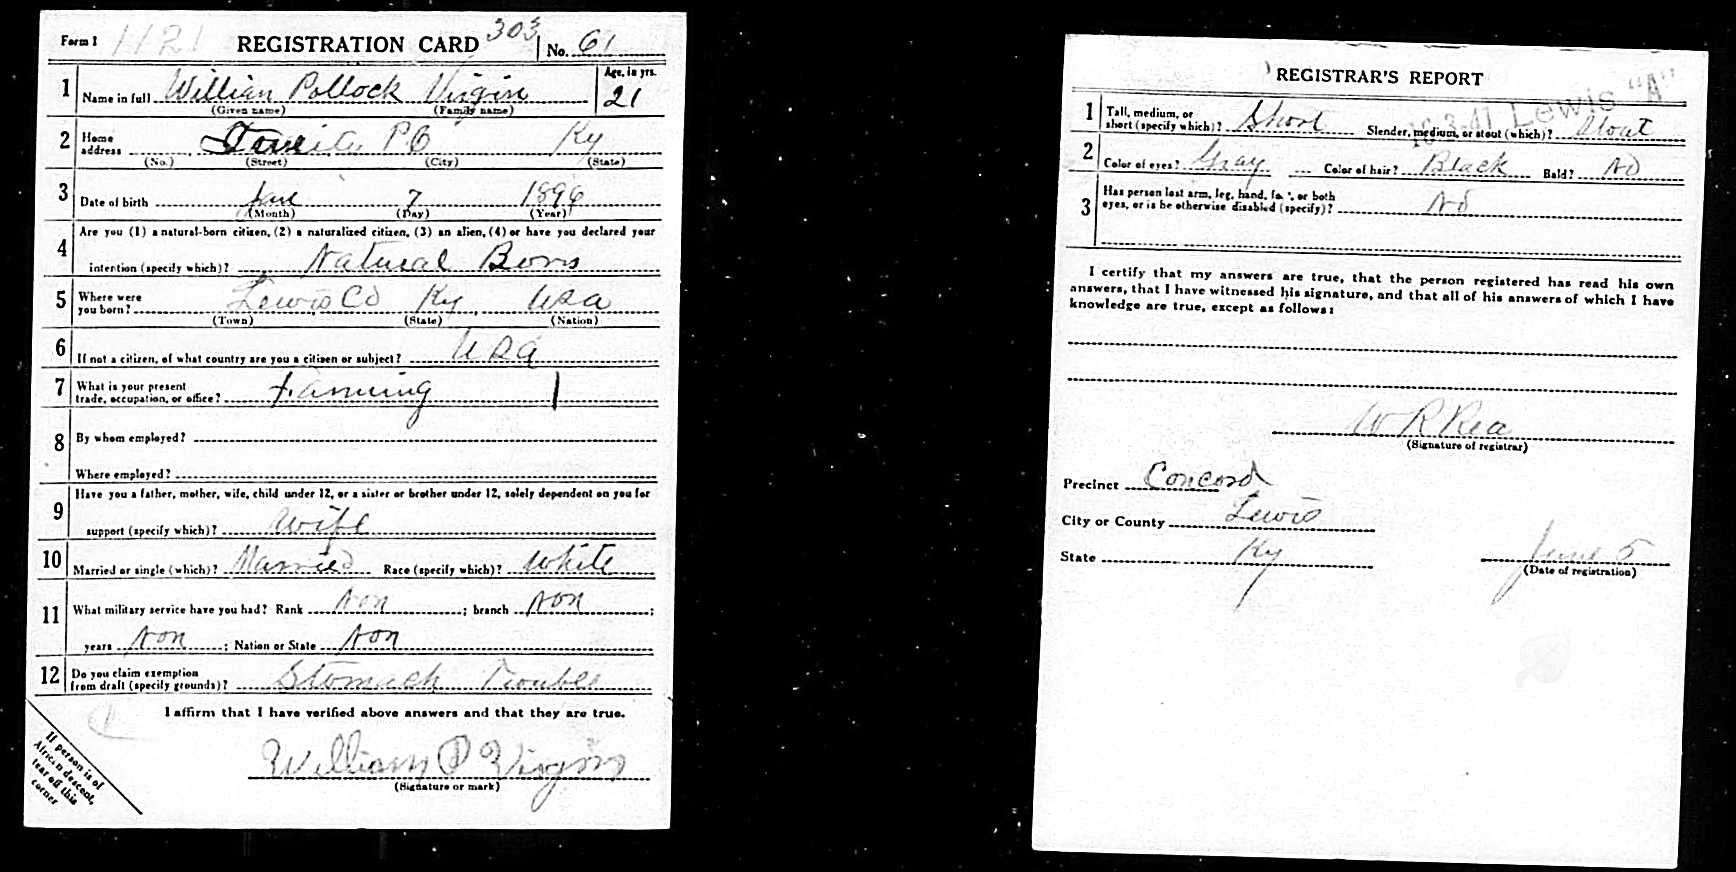 Form 1 1121 REGISTRATION CARD 303 No. 61
1 Name in full William Pollock Virgin Age, in yrs. 21
(Given name) (Family name)
2 Home address P O Ky
(No.) (Street) (City) (State)
3 Date of birth Jan 7 1896
(Month) (Day) (Year)
4 Are you (1) a natural-born citizen, (2) a naturalized citizen, (3) an alien, (4) or have you declared your
intention (specify which)? Natural Born
5 Where were you born? Lewis Co Ky, USA
(Town) (State) (Nation)
6 If not a citizen, of what country are you a citizen or subject? USA
7 What is your present trade, occupation, or office? Farming
8 By whom employed?
Where employed?
9 Have you a father, mother, wife, child under 12, or a sister or brother under 12, solely dependent on you for
support (specify which)? Wife
10 Married or single (which)? Married Race (specify which)? White
11 What military service have you had? Rank Non ; branch Non ;
years Non ; Nation or State Non
12 Do you claim exemption from draft (specify grounds)? Stomach Trouble
I affirm that I have verified above answers and that they are true.
William P Virgin
(Signature or mark)
If person is of
African descent,
tear off this
corner
REGISTRAR'S REPORT
16-3-41 Lewis "A"
1 Tall, medium, or short (specify which)? Short Slender, medium, or stout (which)? Stout
2 Color of eyes? Gray Color of hair? Black Bald? No
3 Has person lost arm, leg, hand, foot, or both
eyes, or is he otherwise disabled (specify)? No
I certify that my answers are true, that the person registered has read his own
answers, that I have witnessed his signature, and that all of his answers of which I have
knowledge are true, except as follows:
W R Rea
(Signature of registrar)
Precinct Concord
City or County Lewis
State Ky June 5
(Date of registration)